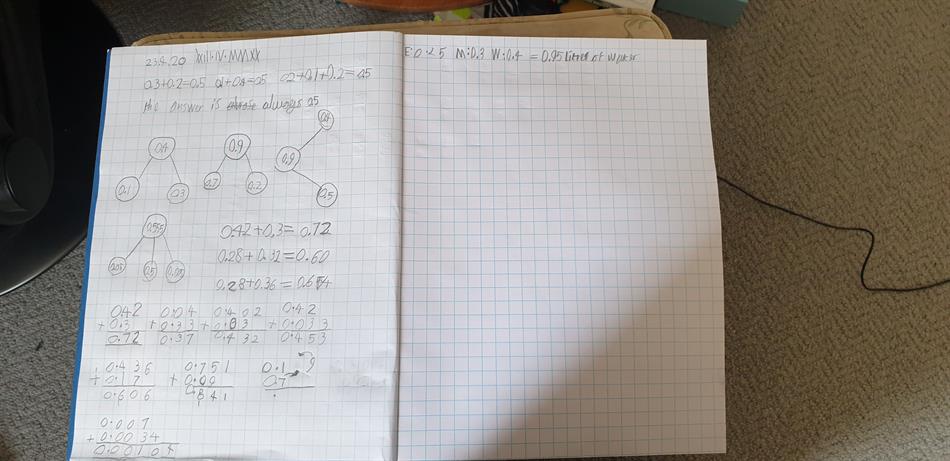 23.4.20 XXIII·IV·MMXX
0.3+0.2=0.5 0.1+0.4=0.5 0.2+0.1+0.2=0.5
the answer is always 0.5
0.4
0.1 0.3
0.9
0.7 0.2
0.4
0.9
0.5
0.555
0.05 0.5 0.005
0.42+0.3=0.72
0.28+0.32=0.60
0.28+0.36=0.64
0.42 0.04 0.402 0.42
+0.3 +0.33 +0.03 +0.033
0.72 0.37 0.432 0.453
0.436 0.751 0.1 9
+0.17 +0.09 0.7
0.606 0.841
0.007
+0.0034
E:0.25 M:0.3 W:0.4 = 0.95 litres of water